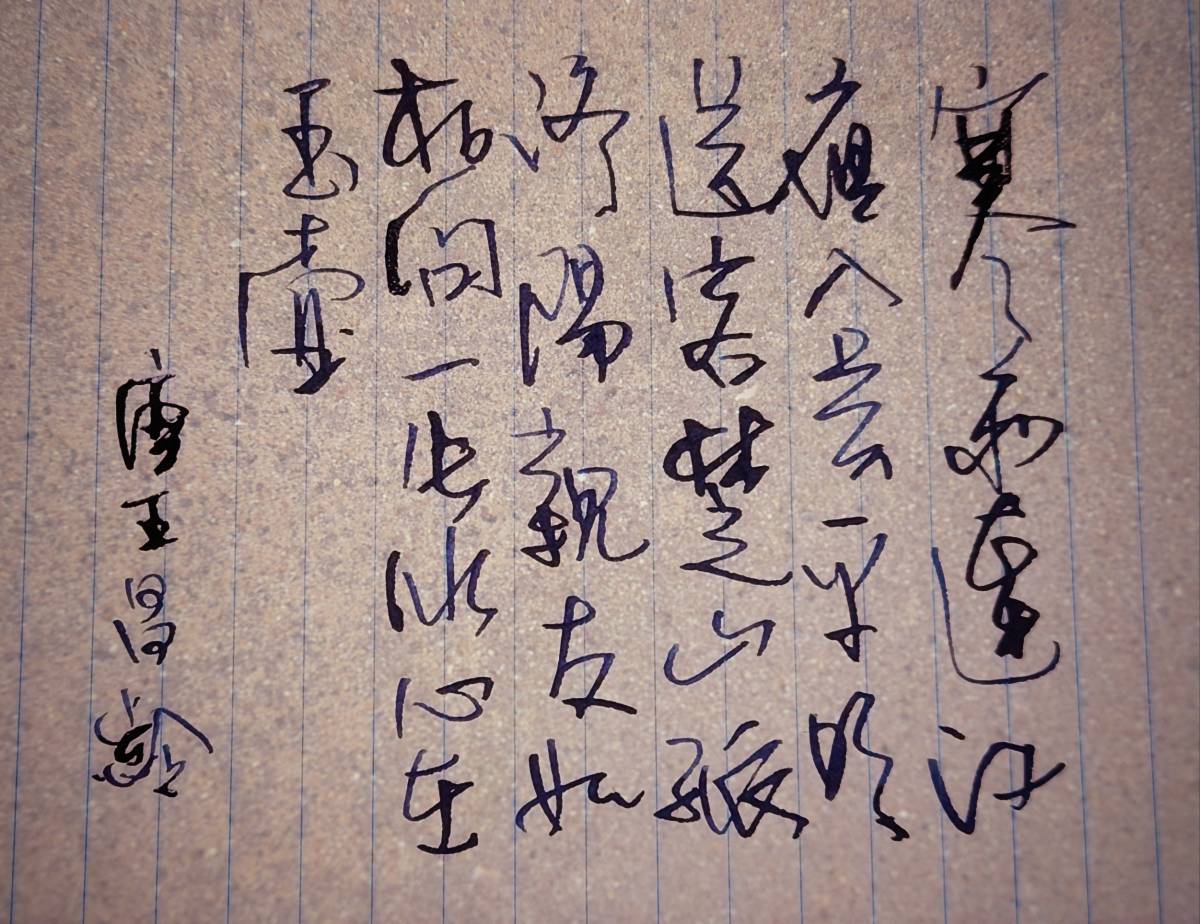 寒雨連江
夜入吳平明
送客楚山孤
洛陽親友如
相問一片冰心在
玉壺
唐王昌齡